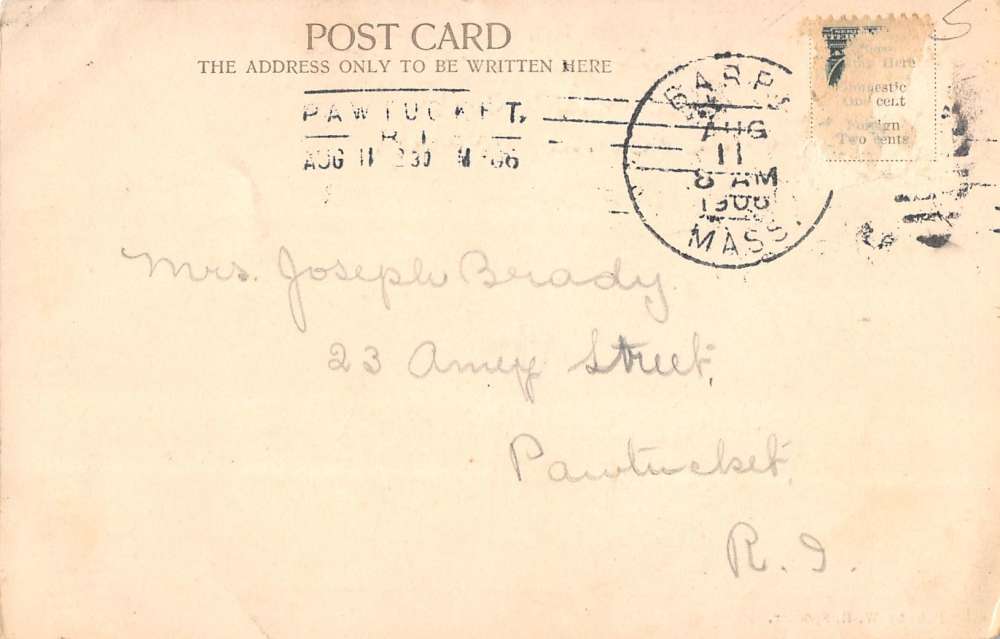 POST CARD
THE ADDRESS ONLY TO BE WRITTEN HERE
PAWTUCKET,
R.I.
AUG 11 230 M '06
BARR
AUG
11
8 AM
1906
MASS.
Here
Domestic
One cent
Foreign
Two cents
5
Mrs. Joseph Brady.
23 Amey Street,
Pawtucket,
R. I.